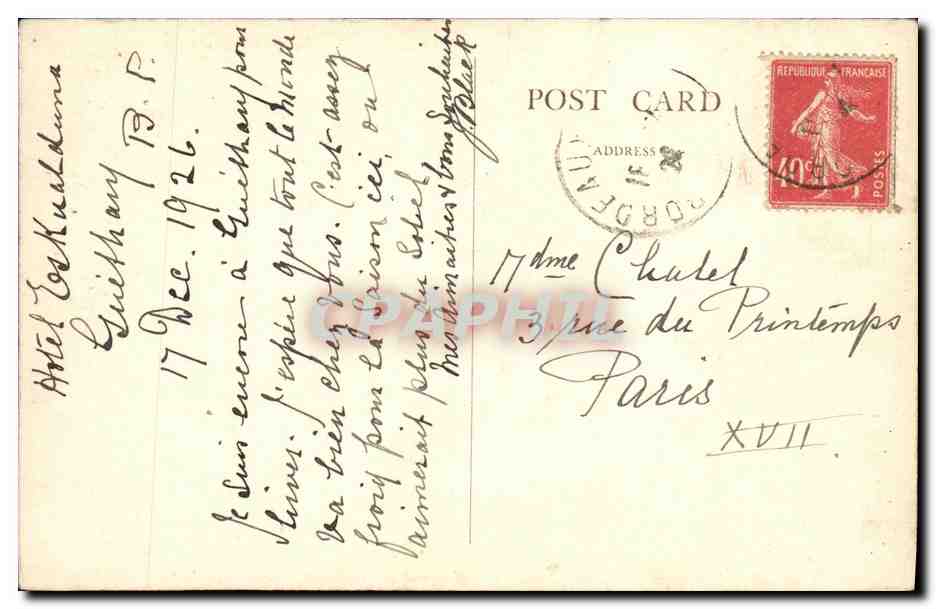 Hotel Eskualduna
Guéthary B. P.
17 Dec. 1926.
Je suis encore à Guéthary pour
l'hiver. J'espère que tout le Monde
va bien chez vous. C'est assez
froid pour la saison ici ou
j'aimerait plus du Soleil
Mes Amitiés & bons Souhaits
J. Black
POST CARD
ADDRESS
BORDEAUX
REPUBLIQUE FRANÇAISE
40c
POSTES
Mdme Chatel
3 rue du Printemps
Paris
XVII
CPAPHIL